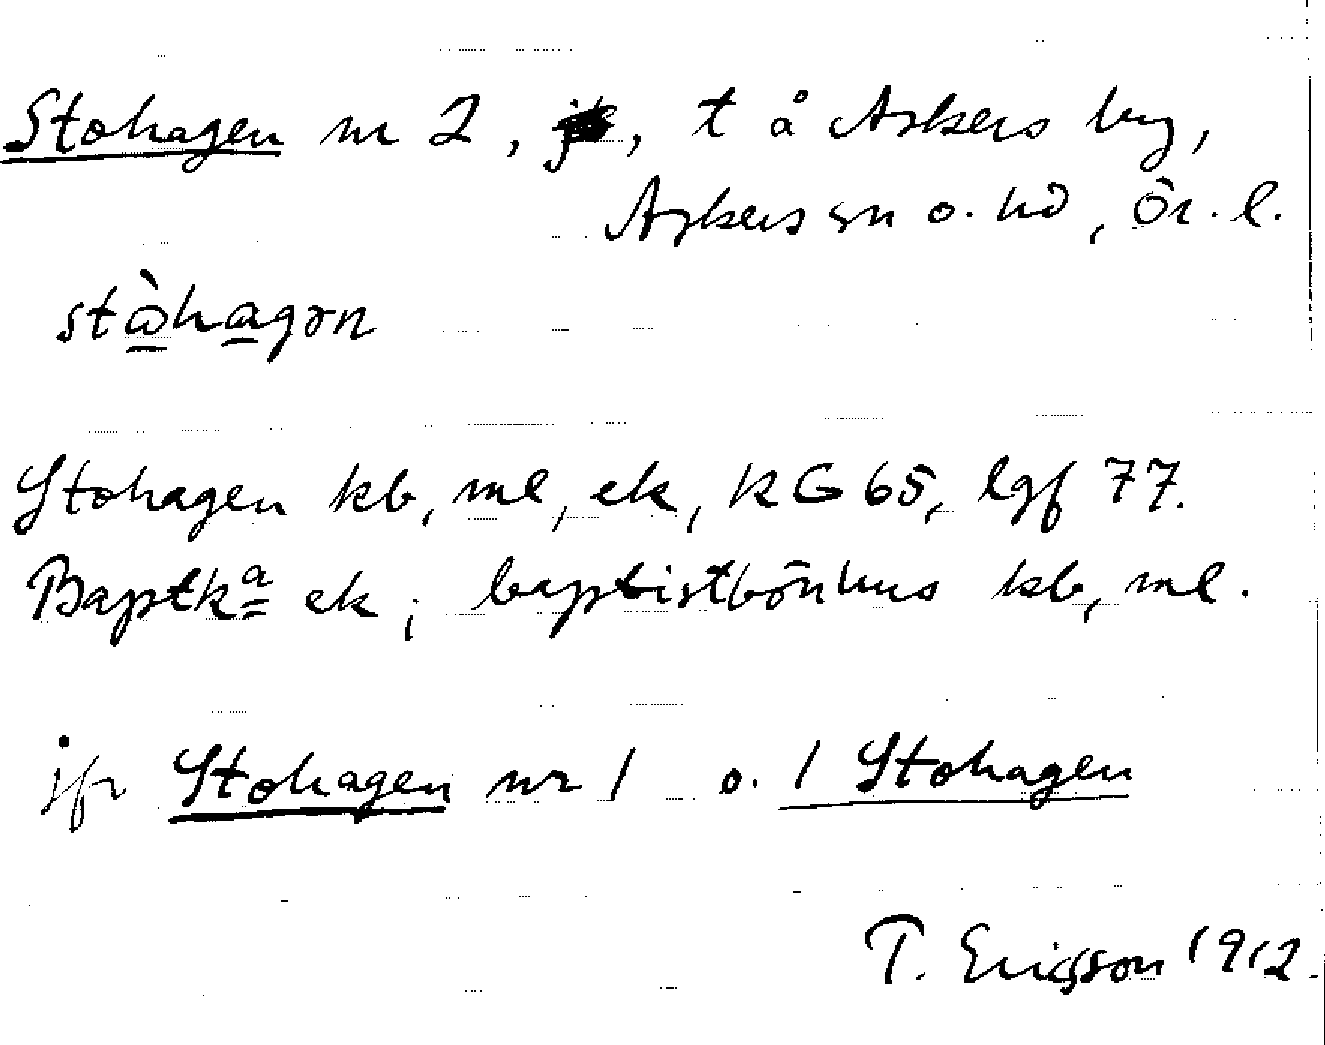 Stohagen nr 2, , t å Askers by,
Askers sn o. hd, Ör. l.
stὼhagən
Stohagen kb, ml, ek, KG 65, lgf 77.
Baptkª ek; baptistbönhus kb, ml.
jfr Stohagen nr 1 o. 1 Stohagen
T. Ericsson 1912.